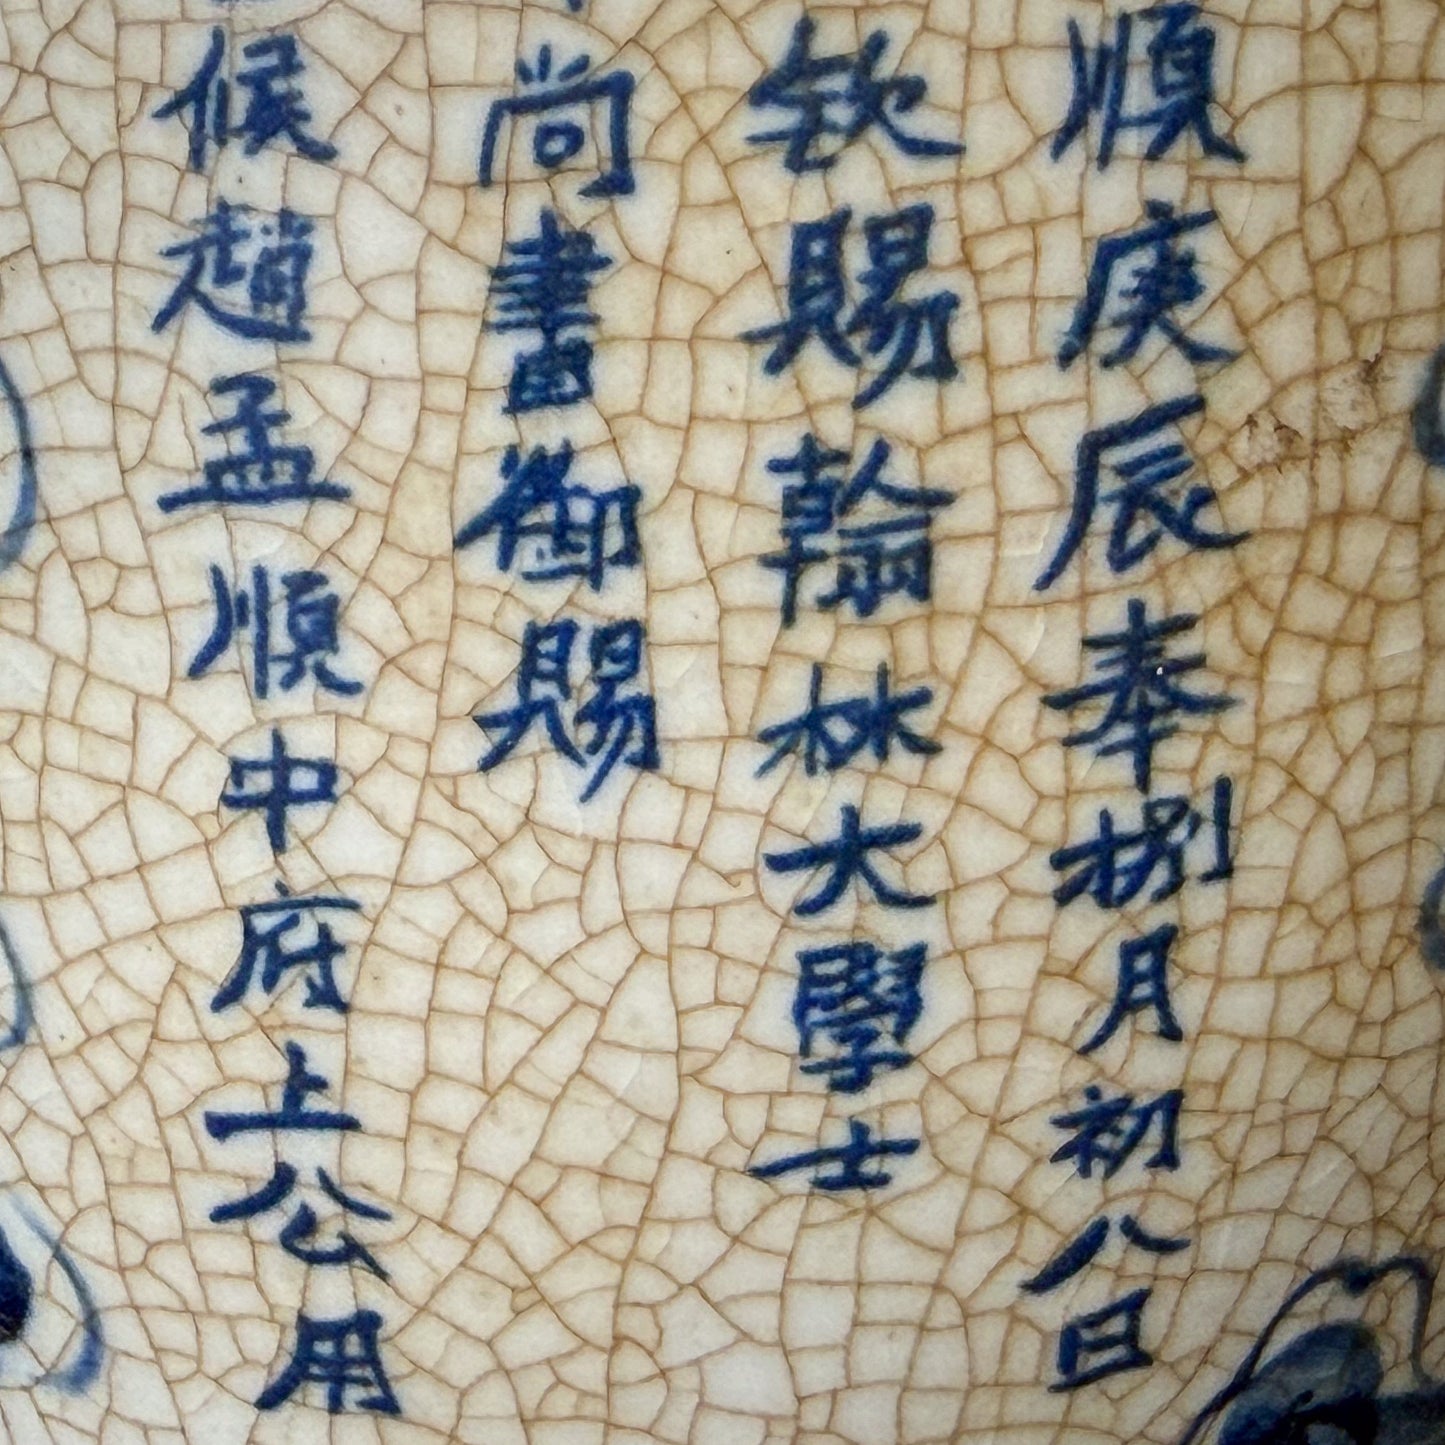 順庚辰奉捌月初八日
欽賜翰林大學士
尚書御賜
候趙孟順中府上公用